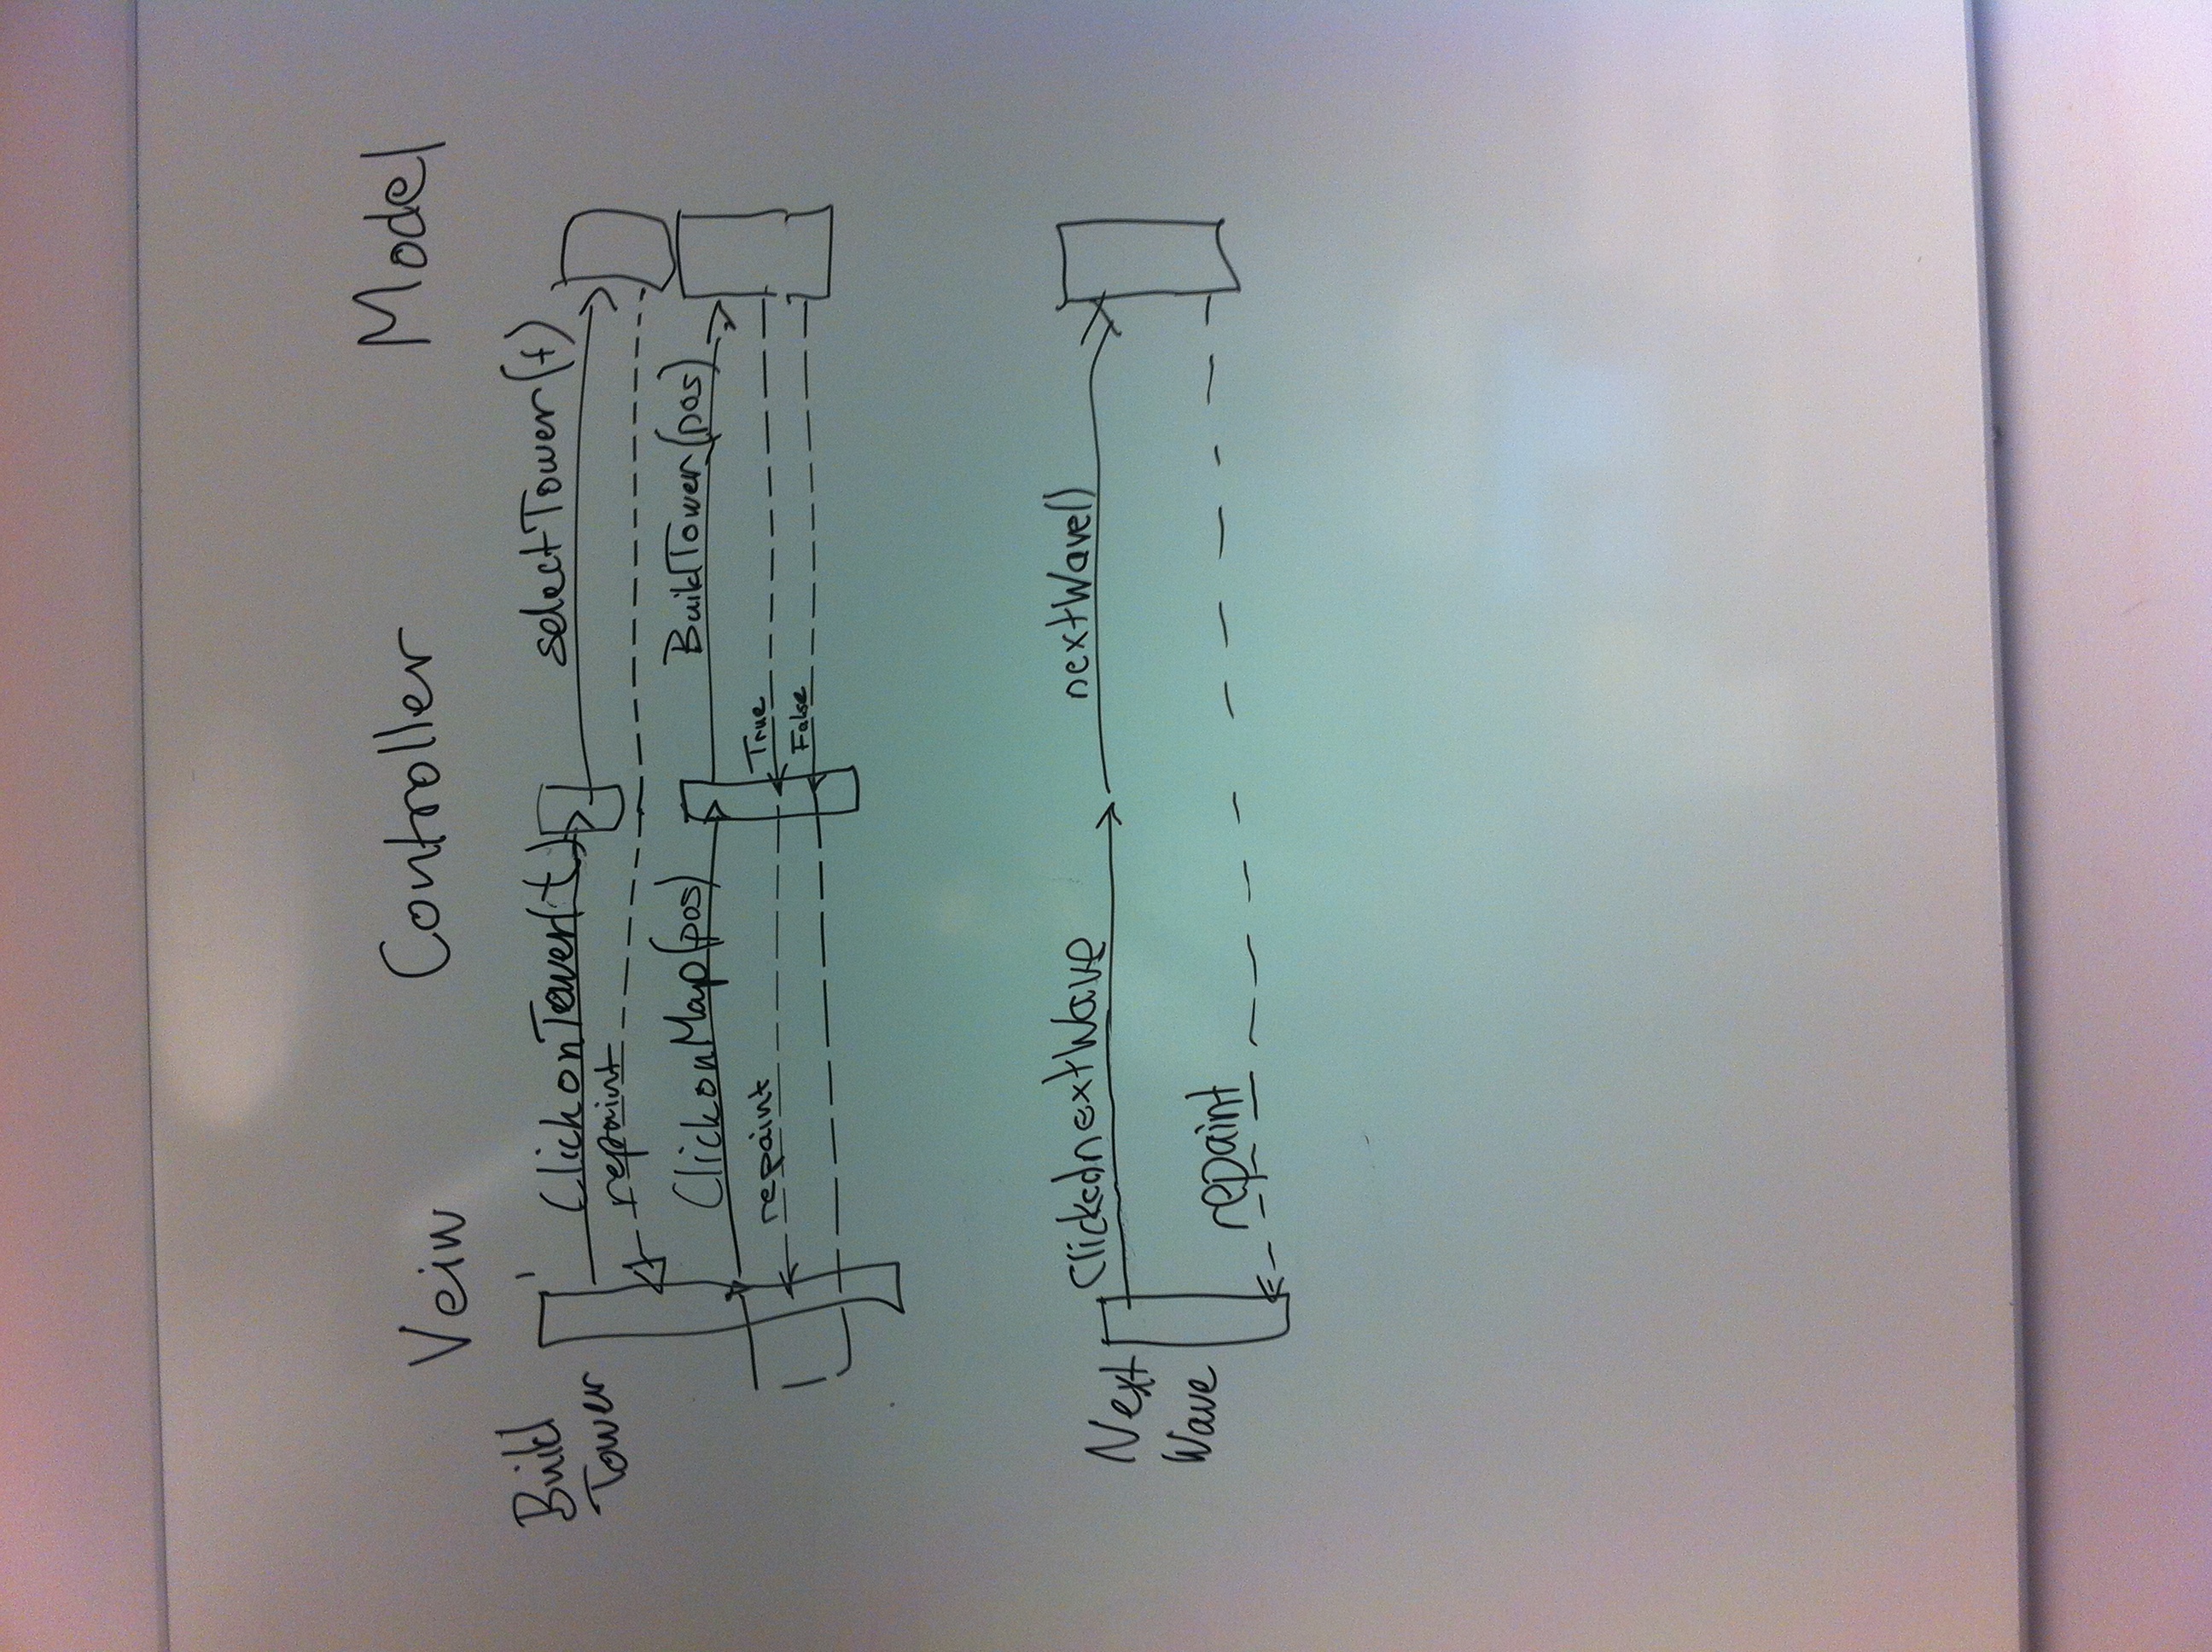 Vein Controller Model
Build
Tower
ClickonTower(t) selectTower(t)
repaint
ClickonMap(pos) BuildTower(pos)
repaint True
False
Next
Wave
ClickednextWave nextWave()
repaint